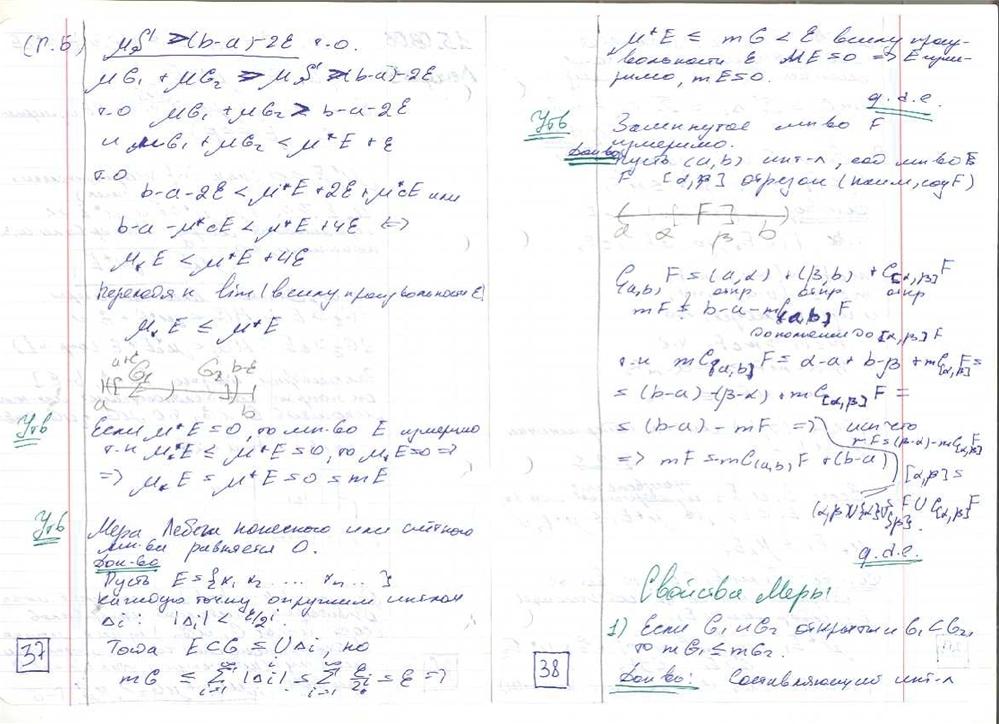 (Л.Б) μS' ≥ (b-a)-2ε т.о.
μG₁ + μG₂ ≥ μS' ≥ (b-a)-2ε
т.о μG₁ + μG₂ ≥ b-a-2ε
и μG₁ + μG₂ < μ*E + ε
т.о
b-a-2ε < μ*E + 2ε + μ*CE или
b-a-μ*CE < μ*E + 4ε ⇔
μ_*E < μ*E + 4ε
Переходя к lim (в силу произвольности ε)
μ_*E ≤ μ*E
a+ε G₁ G₂ b-ε
a b
Утв Если μ*E=0, то мн-во E измеримо
т.к μ_*E ≤ μ*E=0, то μ_*E=0 ⇒
⇒ μ_*E = μ*E = 0 = mE
Утв Мера Лебега конечного или счётного
мн-ва равняется 0.
Док-во
Пусть E={x₁ x₂ .... xₙ ..}
каждую точку окружим инт-лом
Δi: |Δi| < ε/2ⁱ
Тогда E⊂G = ∪Δi, но
mG ≤ Σ|Δi| ≤ Σ ε/2ⁱ = ε ⇒
37
μ*E ≤ mG < ε в силу произ-
вольности ε μE=0 ⇒ E изме-
римо, mE=0.
q.d.e.
Утв Замкнутое мн-во F
измеримо.
Док-во Пусть (a,b) инт-л, сод мн-во F
F [α,β] отрезок (наим, сод F)
( [ F ] )
a α β b
C(a,b) F = (a,α) + (β,b) + C[α,β]F
откр откр откр
mF = b-a-mC(a,b)F
дополнение до [α,β] F
т.к mC(a,b)F = α-a+b-β+mC[α,β]F =
= (b-a)-(β-α)+mC[α,β]F =
= (b-a)-mF ⇒ исп что
mF=(β-α)-mC[α,β]F
⇒ mF = mC(a,b)F + (b-a)
[α,β] =
(α,β)∪{α}∪{β} F∪C[α,β]F
q.d.e.
Свойства Меры
1) Если G₁ и G₂ открыты и G₁⊂G₂,
то mG₁ ≤ mG₂.
Док-во: Составляющий инт-л
38